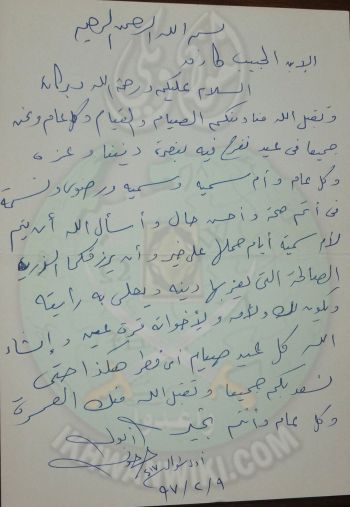 بسم الله الرحمن الرحيم
الابن الحبيب طارق
السلام عليكم ورحمة الله وبركاته
وتقبل الله منا ومنكم الصيام والقيام وكل عام ونحن
جميعا في عيد نفرح فيه بنصرة ديننا وعزه
وكل عام وأم سمية وسمية ورضوى ونسمة
في أتم صحة وأحسن حال وأسأل الله أن يتم
لأم سمية أيام حملها على خير وأن يرزقكما الذرية
الصالحة التي يعز بها دينه ويعلى به رايته
ويكون لك ولأمه ولإخوانه قرة عين وإنشاء
الله كل عيد صيام أو فطر هكذا حتى
نسعد بكم جميعا وتقبل الله منك العمرة
وكل عام وأنتم بخير
٩٧/٢/٩
IKHWANWIKI.COM